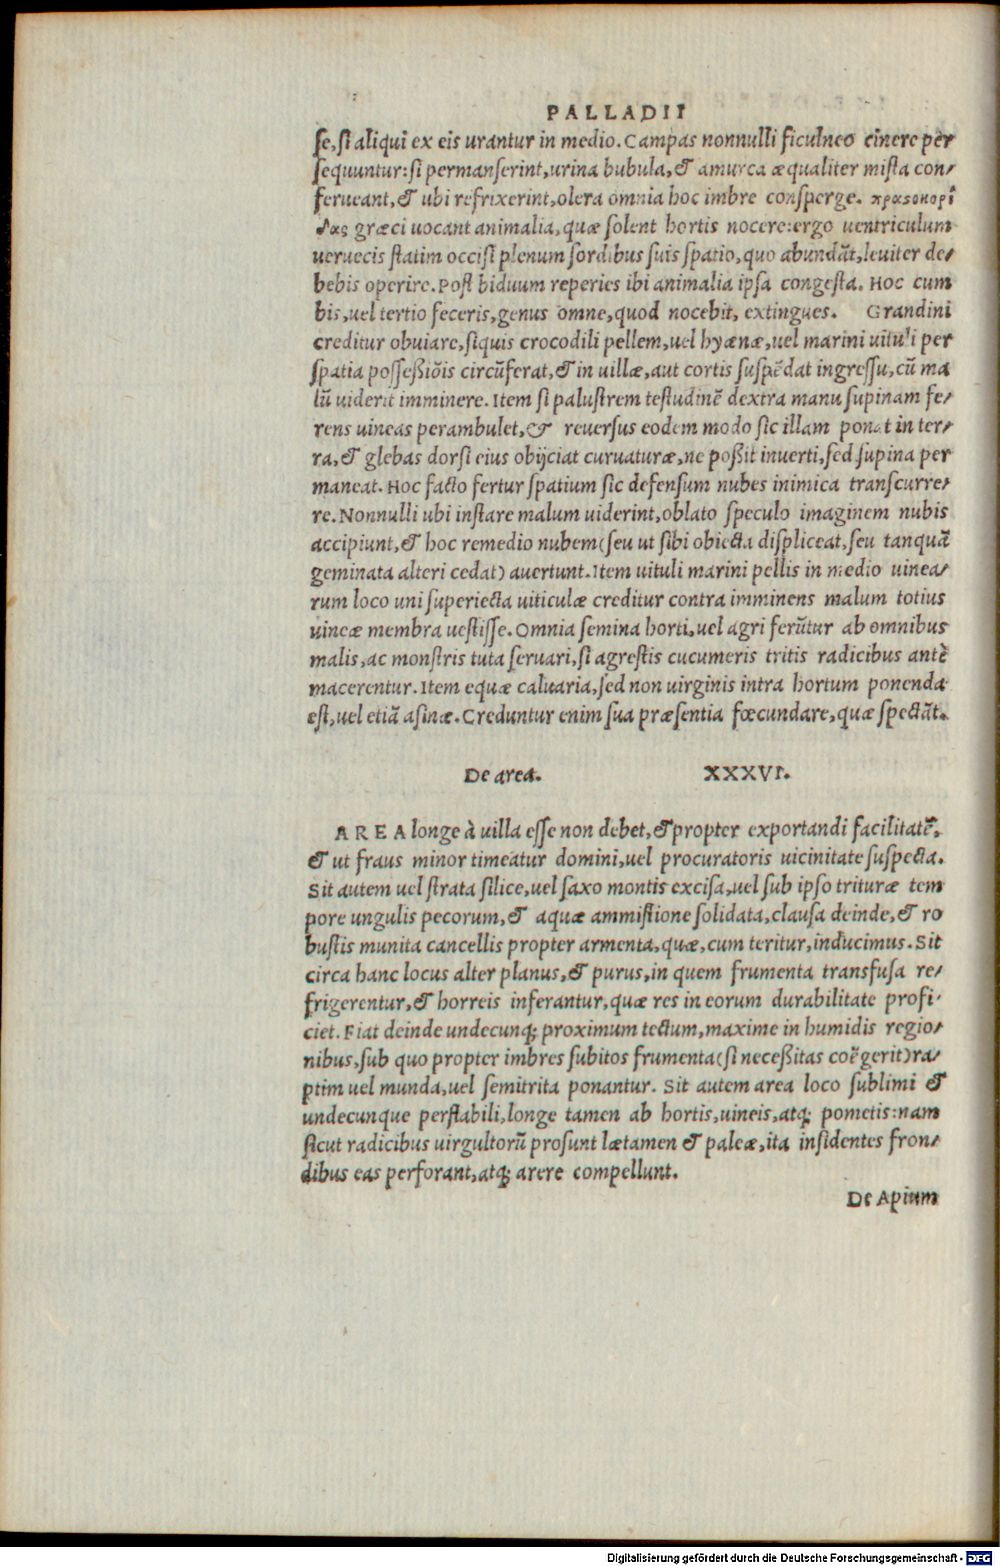 PALLADII
se, si aliqui ex eis urantur in medio. Campas nonnulli ficulneo cinere per
sequuntur: si permanserint, urina bubula, & amurca æqualiter mista con/
ferueant, & ubi refrixerint, olera omnia hoc imbre consperge. πρασοκορί
δας græci uocant animalia, quæ solent hortis nocere: ergo uentriculum
ueruecis statim occisi plenum sordibus suis spatio, quo abundāt, leuiter de/
bebis operire. Post biduum reperies ibi animalia ipsa congesta. Hoc cum
bis, uel tertio feceris, genus omne, quod nocebit, extingues. Grandini
creditur obuiare, siquis crocodili pellem, uel hyænæ, uel marini uituli per
spatia possessiōis circūferat, & in uillæ, aut cortis suspēdat ingressu, cū ma
lū uiderit imminere. Item si palustrem testudinē dextra manu supinam fe/
rens uineas perambulet, & reuersus eodem modo sic illam ponat in ter/
ra, & glebas dorsi eius obijciat curuaturæ, ne possit inuerti, sed supina per
maneat. Hoc facto fertur spatium sic defensum nubes inimica transcurre/
re. Nonnulli ubi instare malum uiderint, oblato speculo imaginem nubis
accipiunt, & hoc remedio nubem (seu ut sibi obiecta displiceat, seu tanquā
geminata alteri cedat) auertunt. Item uituli marini pellis in medio uinea/
rum loco uni superiecta uiticulæ creditur contra imminens malum totius
uineæ membra uestisse. Omnia semina horti, uel agri ferūtur ab omnibus
malis, ac monstris tuta seruari, si agrestis cucumeris tritis radicibus antè
macerentur. Item equæ caluaria, sed non uirginis intra hortum ponenda
est, uel etiā asinæ. Creduntur enim sua præsentia fœcundare, quæ spectāt.
De area. XXXVI.
AREA longe à uilla esse non debet, & propter exportandi facilitatē,
& ut fraus minor timeatur domini, uel procuratoris uicinitate suspecta.
Sit autem uel strata silice, uel saxo montis excisa, uel sub ipso trituræ tem
pore ungulis pecorum, & aquæ ammistione solidata, clausa deinde, & ro
bustis munita cancellis propter armenta, quæ, cum teritur, inducimus. Sit
circa hanc locus alter planus, & purus, in quem frumenta transfusa re/
frigerentur, & horreis inferantur, quæ res in eorum durabilitate profi/
ciet. Fiat deinde undecunq; proximum tectum, maxime in humidis regio/
nibus, sub quo propter imbres subitos frumenta (si necessitas coēgerit) ra/
ptim uel munda, uel semitrita ponantur. Sit autem area loco sublimi &
undecunque perflabili, longe tamen ab hortis, uineis, atq; pometis: nam
sicut radicibus uirgultorū prosunt lætamen & paleæ, ita insidentes fron/
dibus eas perforant, atq; arere compellunt.
De Apium
Digitalisierung gefördert durch die Deutsche Forschungsgemeinschaft - DFG